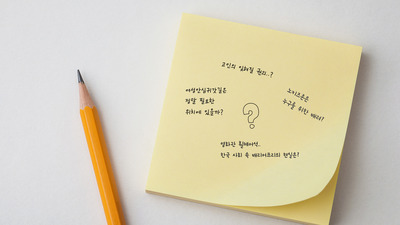 고인의 잊혀질 권리..?
여성안심귀갓길은
정말 필요한
위치에 있을까?
노키즈존은
누구를 위한 배려?
?
영화관 휠체어석,
한국 사회 속 배리어프리의 현실은?